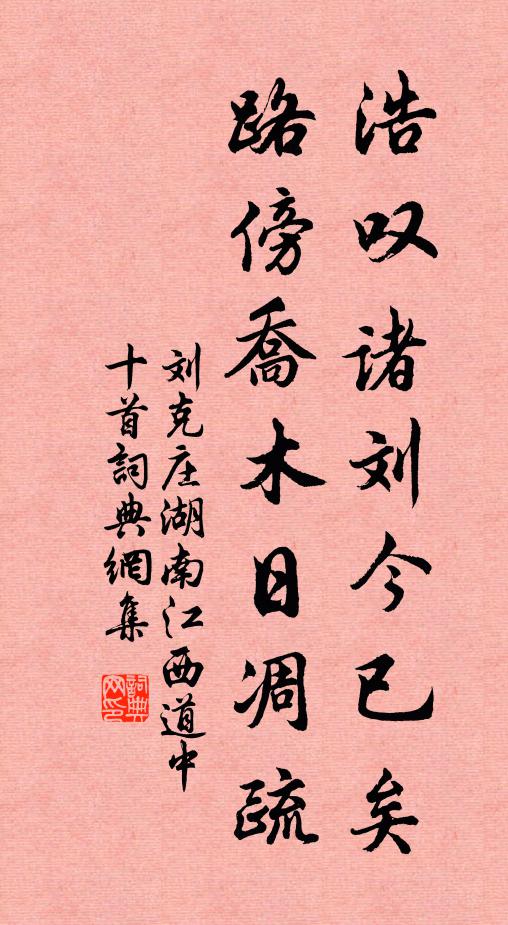 浩叹诸刘今已矣
路傍喬木日凋疏
刘克庄湖南江西道中
十首詞典網集
詞典網印